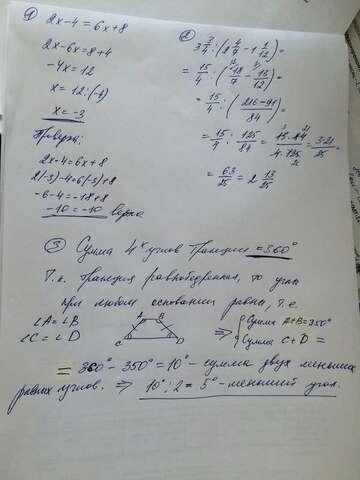 ① 2x-4=6x+8
2x-6x=8+4
-4x=12
x=12:(-4)
x=-3
Проверка:
2x-4=6x+8
2(-3)-4=6(-3)+8
-6-4=-18+8
-10=-10 верно
②
3 3/4 : (2 4/7 - 1 1/12) =
15/4 : (18/7 - 13/12) =
= 15/4 : (216-91/84) =
= 15/4 : 125/84 = 15·84/4·125 = 3·21/25 =
= 63/25 = 2 13/25
③ Сумма 4х углов трапеции =360°
Т.к. трапеция равнобедренная, то углы
при любом основании равны, т.е.
∠A=∠B
∠C=∠D
A B
C D
⇒ { Сумма A+B=350°
Сумма C+D =
= 360°-350°=10° - сумма двух меньших
равных углов. ⇒ 10°:2=5° - меньший угол.